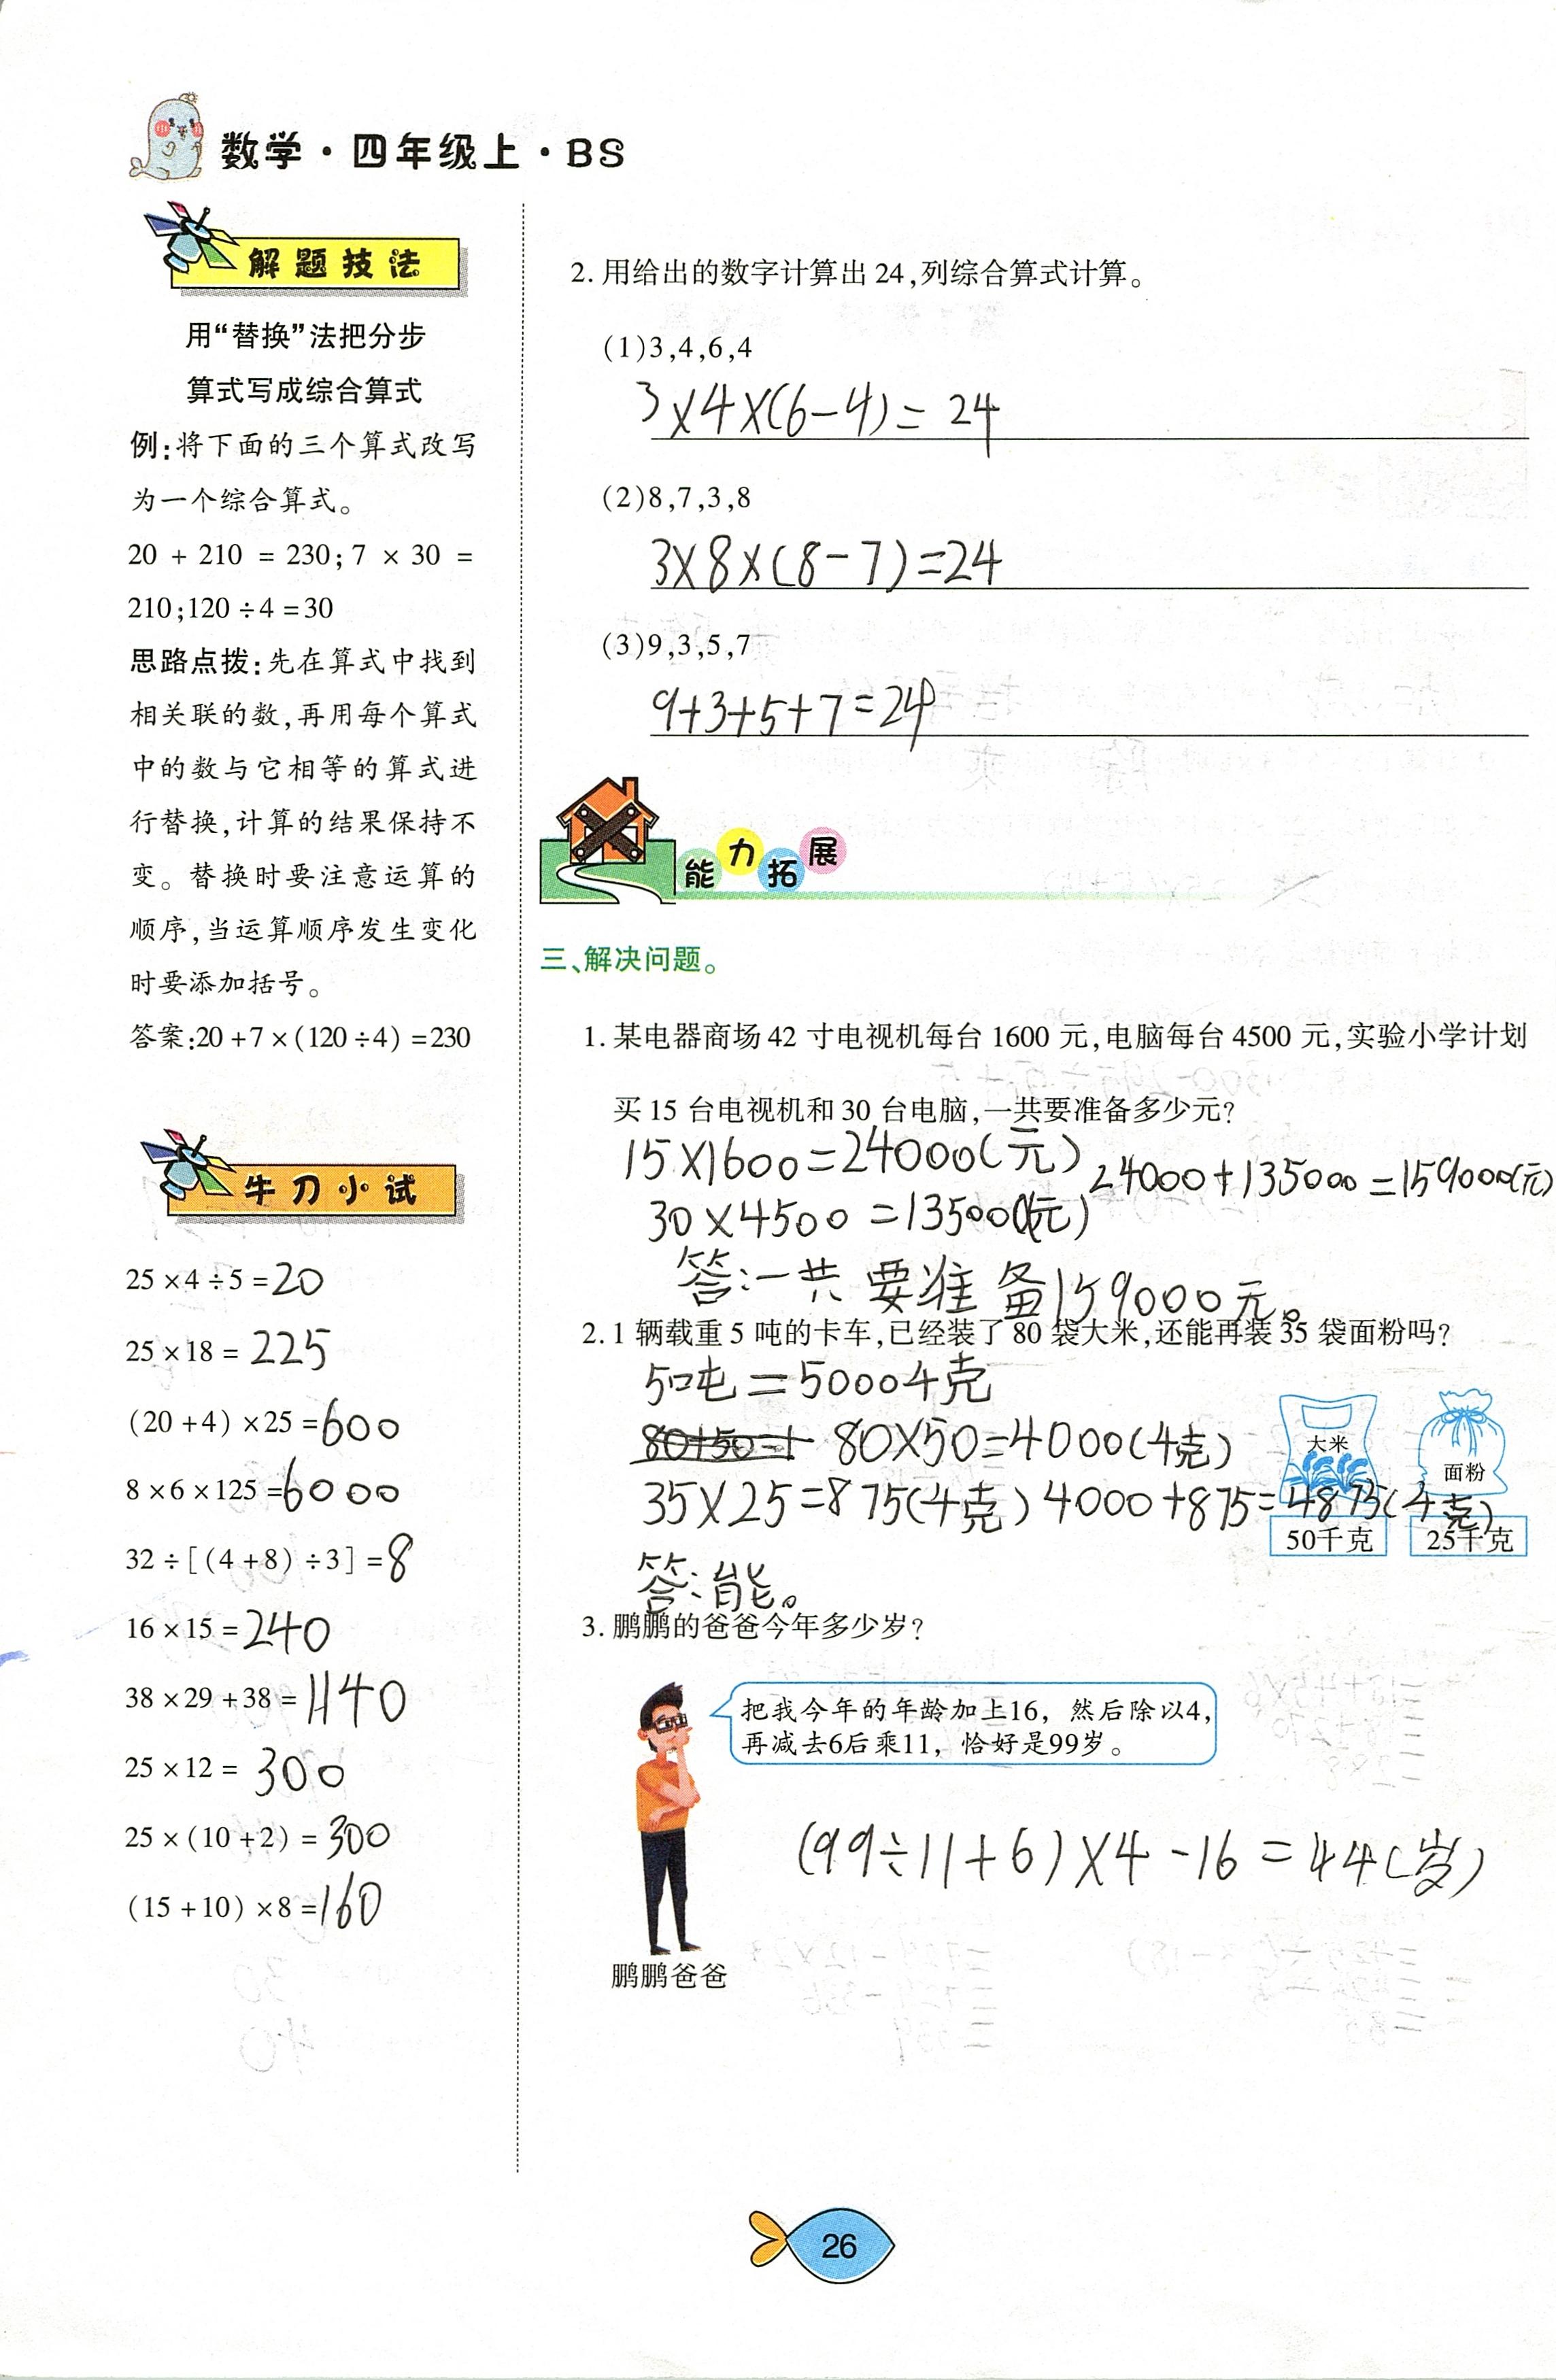 数学·四年级上·BS
解题技法
用“替换”法把分步
算式写成综合算式
例:将下面的三个算式改写
为一个综合算式。
20 + 210 = 230;7 × 30 =
210;120÷4=30
思路点拨:先在算式中找到
相关联的数,再用每个算式
中的数与它相等的算式进
行替换,计算的结果保持不
变。替换时要注意运算的
顺序,当运算顺序发生变化
时要添加括号。
答案:20+7×(120÷4)=230
牛刀小试
25×4÷5=20
25×18=225
(20+4)×25=600
8×6×125=6000
32÷[(4+8)÷3]=8
16×15=240
38×29+38=1140
25×12=300
25×(10+2)=300
(15+10)×8=160
2.用给出的数字计算出24,列综合算式计算。
(1)3,4,6,4
3×4×(6-4)=24
(2)8,7,3,8
3×8×(8-7)=24
(3)9,3,5,7
9+3+5+7=24
能力拓展
三、解决问题。
1.某电器商场42寸电视机每台1600元,电脑每台4500元,实验小学计划
买15台电视机和30台电脑,一共要准备多少元?
15×1600=24000(元) 24000+135000=159000(元)
30×4500=135000(元)
答:一共要准备159000元。
2.1辆载重5吨的卡车,已经装了80袋大米,还能再装35袋面粉吗?
5吨=5000千克
80×50=4000(千克)
35×25=875(千克) 4000+875=4875(千克)
答:能。
大米
面粉
50千克
25千克
3.鹏鹏的爸爸今年多少岁?
把我今年的年龄加上16，然后除以4,
再减去6后乘11，恰好是99岁。
(99÷11+6)×4-16=44(岁)
鹏鹏爸爸
26